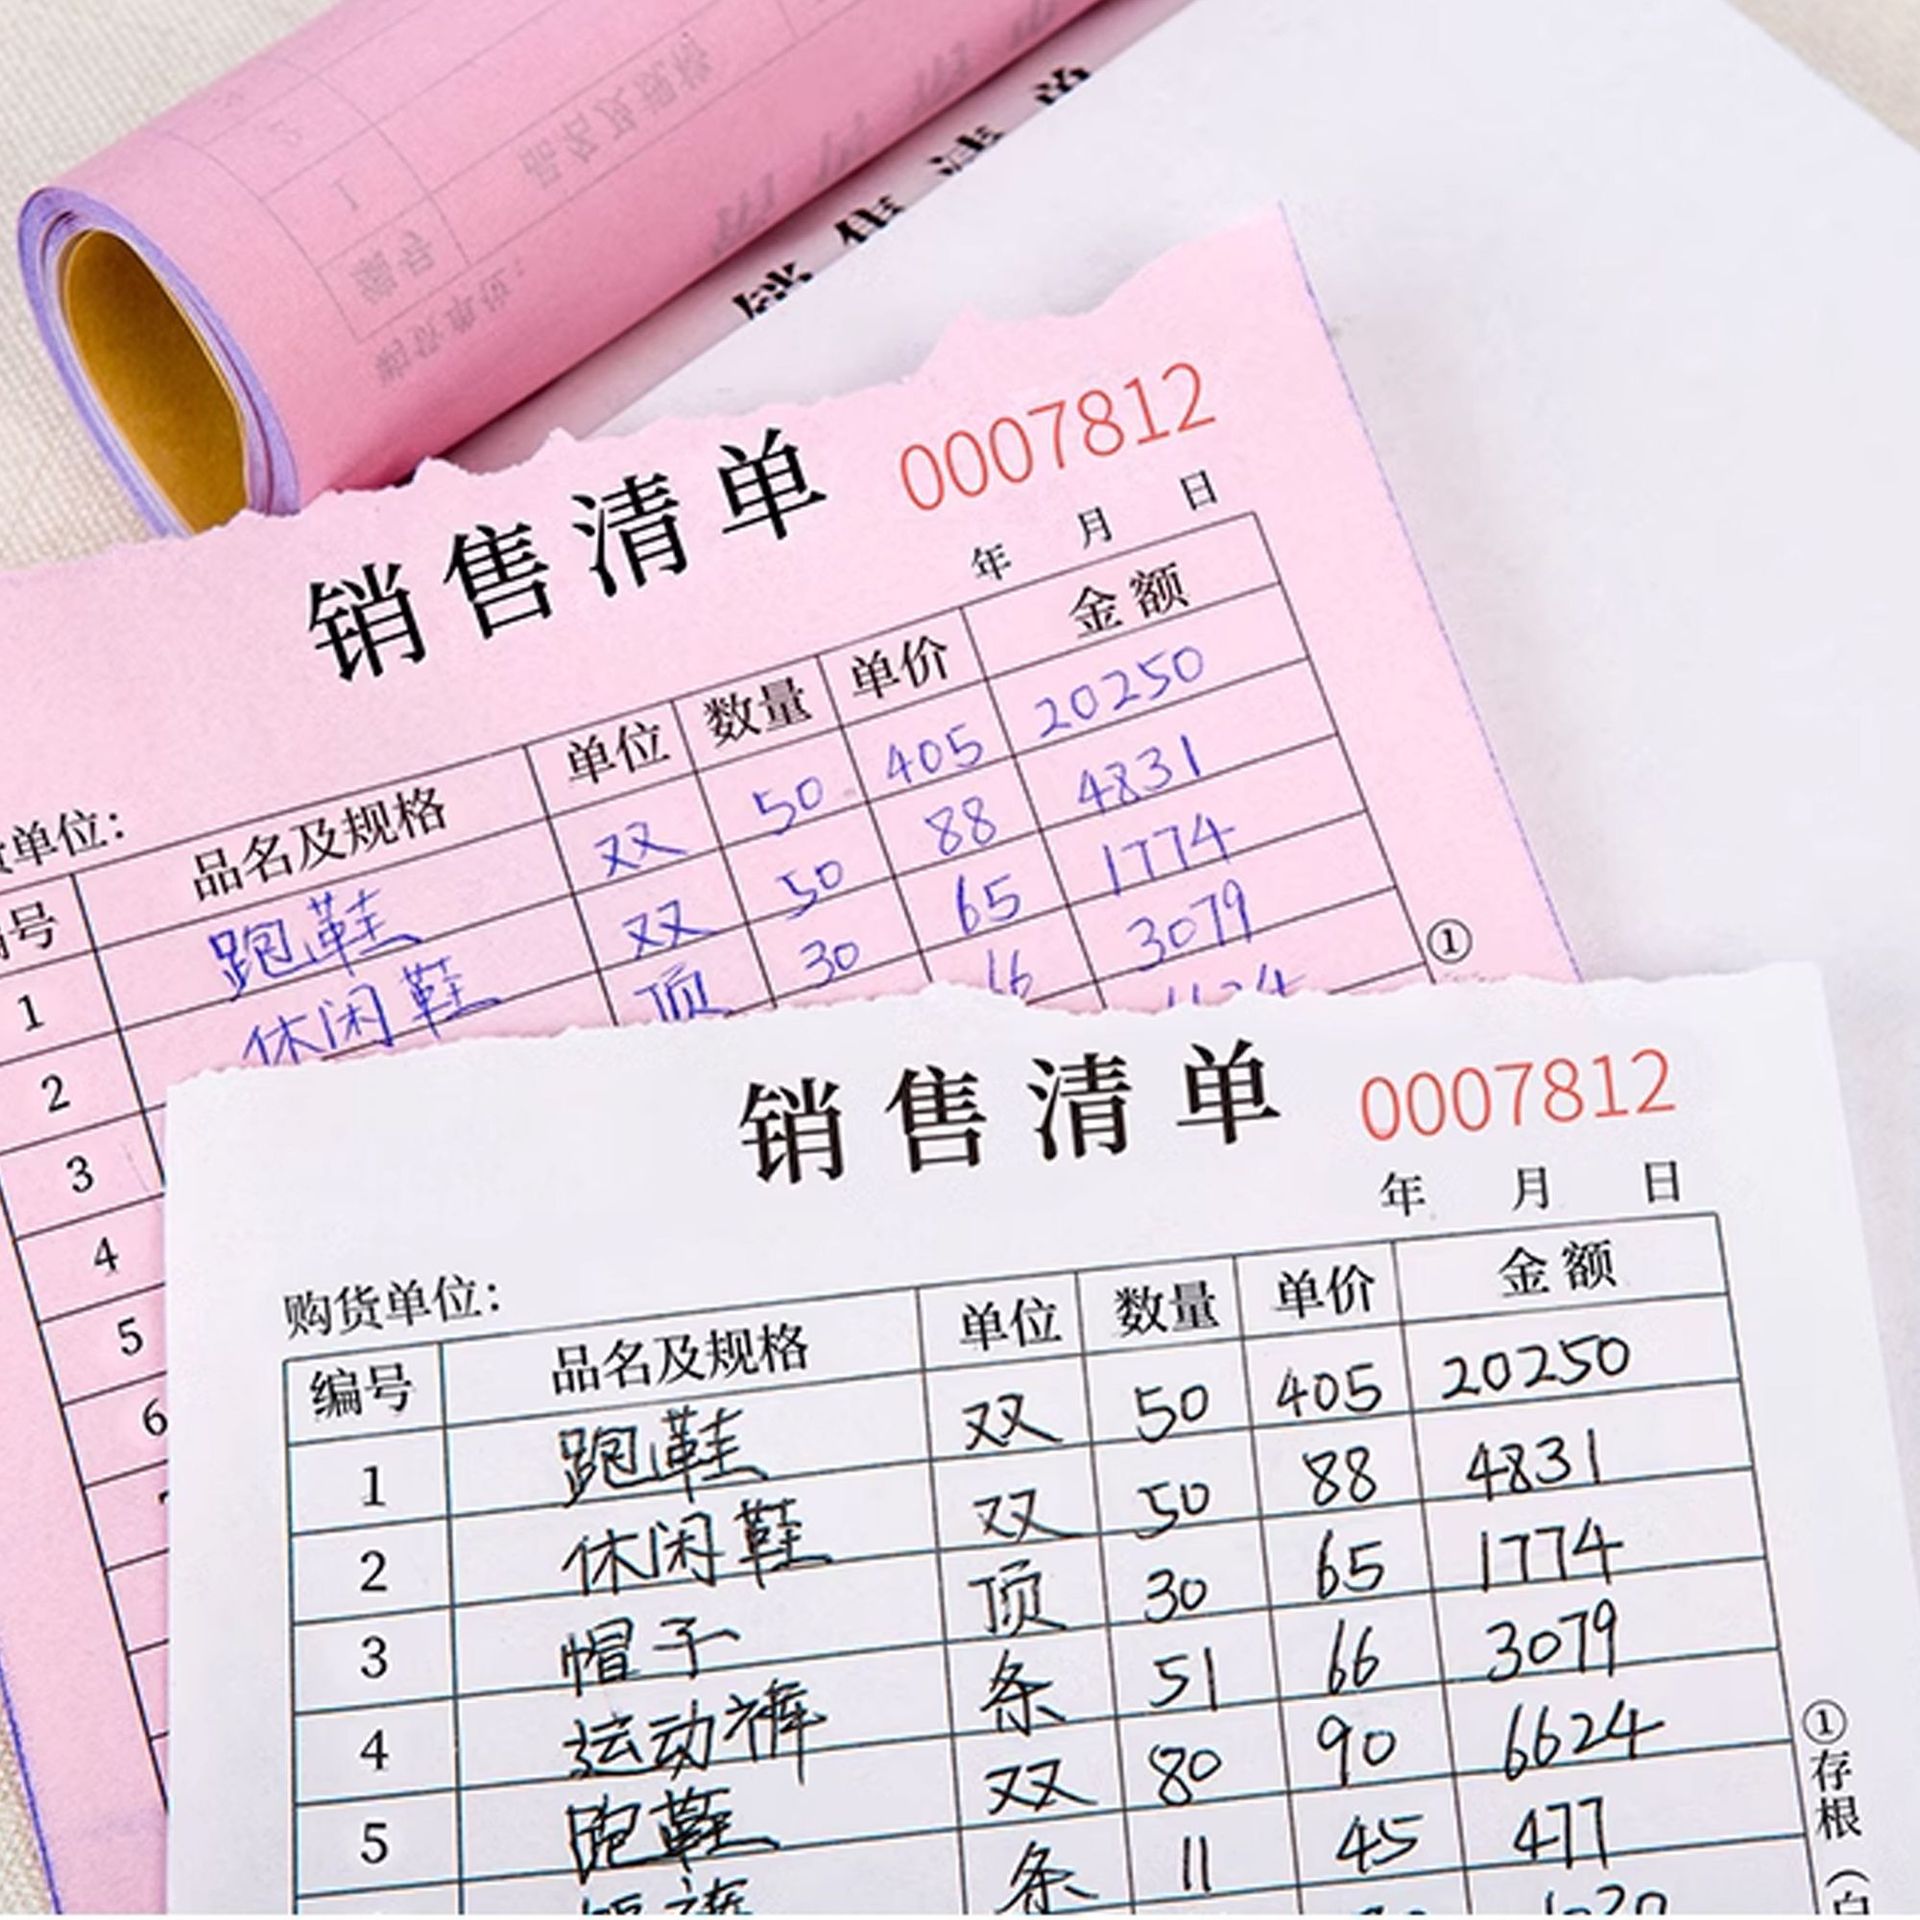 销售清单 0007812
年 月 日
单位:
品名及规格 单位 数量 单价 金额
1 跑鞋 双 50 405 20250
2 休闲鞋 双 50 88 4831
3 顶 30 65 1774
4 3079
5
6
①
销售清单 0007812
年 月 日
购货单位:
编号 品名及规格 单位 数量 单价 金额
1 跑鞋 双 50 405 20250
2 休闲鞋 双 50 88 4831
3 帽子 顶 30 65 1774
4 运动裤 条 51 66 3079
5 跑鞋 双 80 90 6624
条 11 45 477
①存根(白